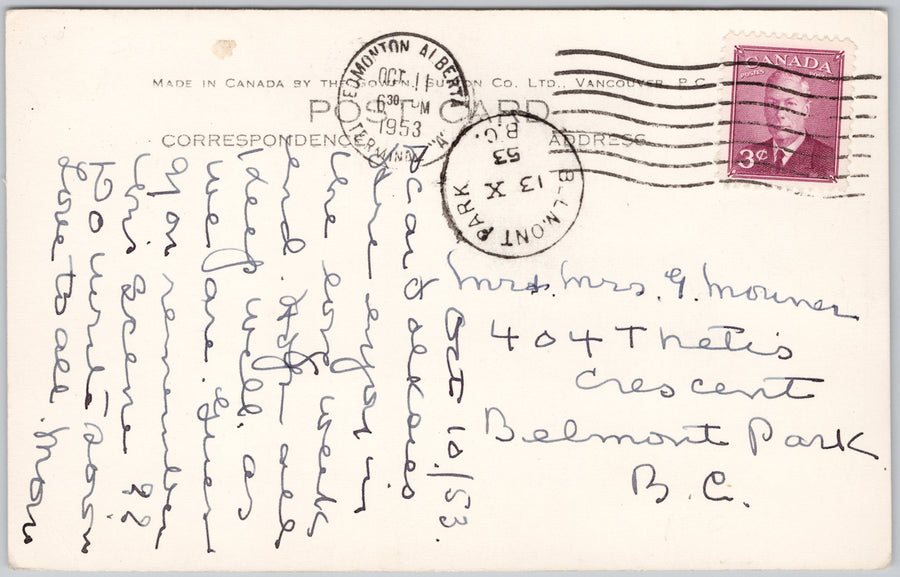 MADE IN CANADA BY THE GOWEN, SUTTON CO. LTD., VANCOUVER, B.C.
POST CARD
CORRESPONDENCE ADDRESS
EDMONTON ALBERTA
OCT 11
6 30 PM
1953
TERMINAL "A"
BELMONT PARK
13 X
53
B.C.
CANADA
POSTES POSTAGE
3¢
Oct 10/53.
Are enjoy in
the week
end. Hope all
keep well. as
we are. Guess
you remember
this scene ??
Do write soon
Love to all. Mom
Mr & Mrs. G.
404 Thetis
Crescent
Belmont Park
B.C.